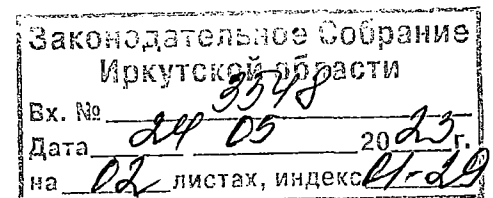 Законодательное Собрание
Иркутской области
Вх. № 3548
Дата 24 05 2023 г.
на 02 листах, индекс 01-29